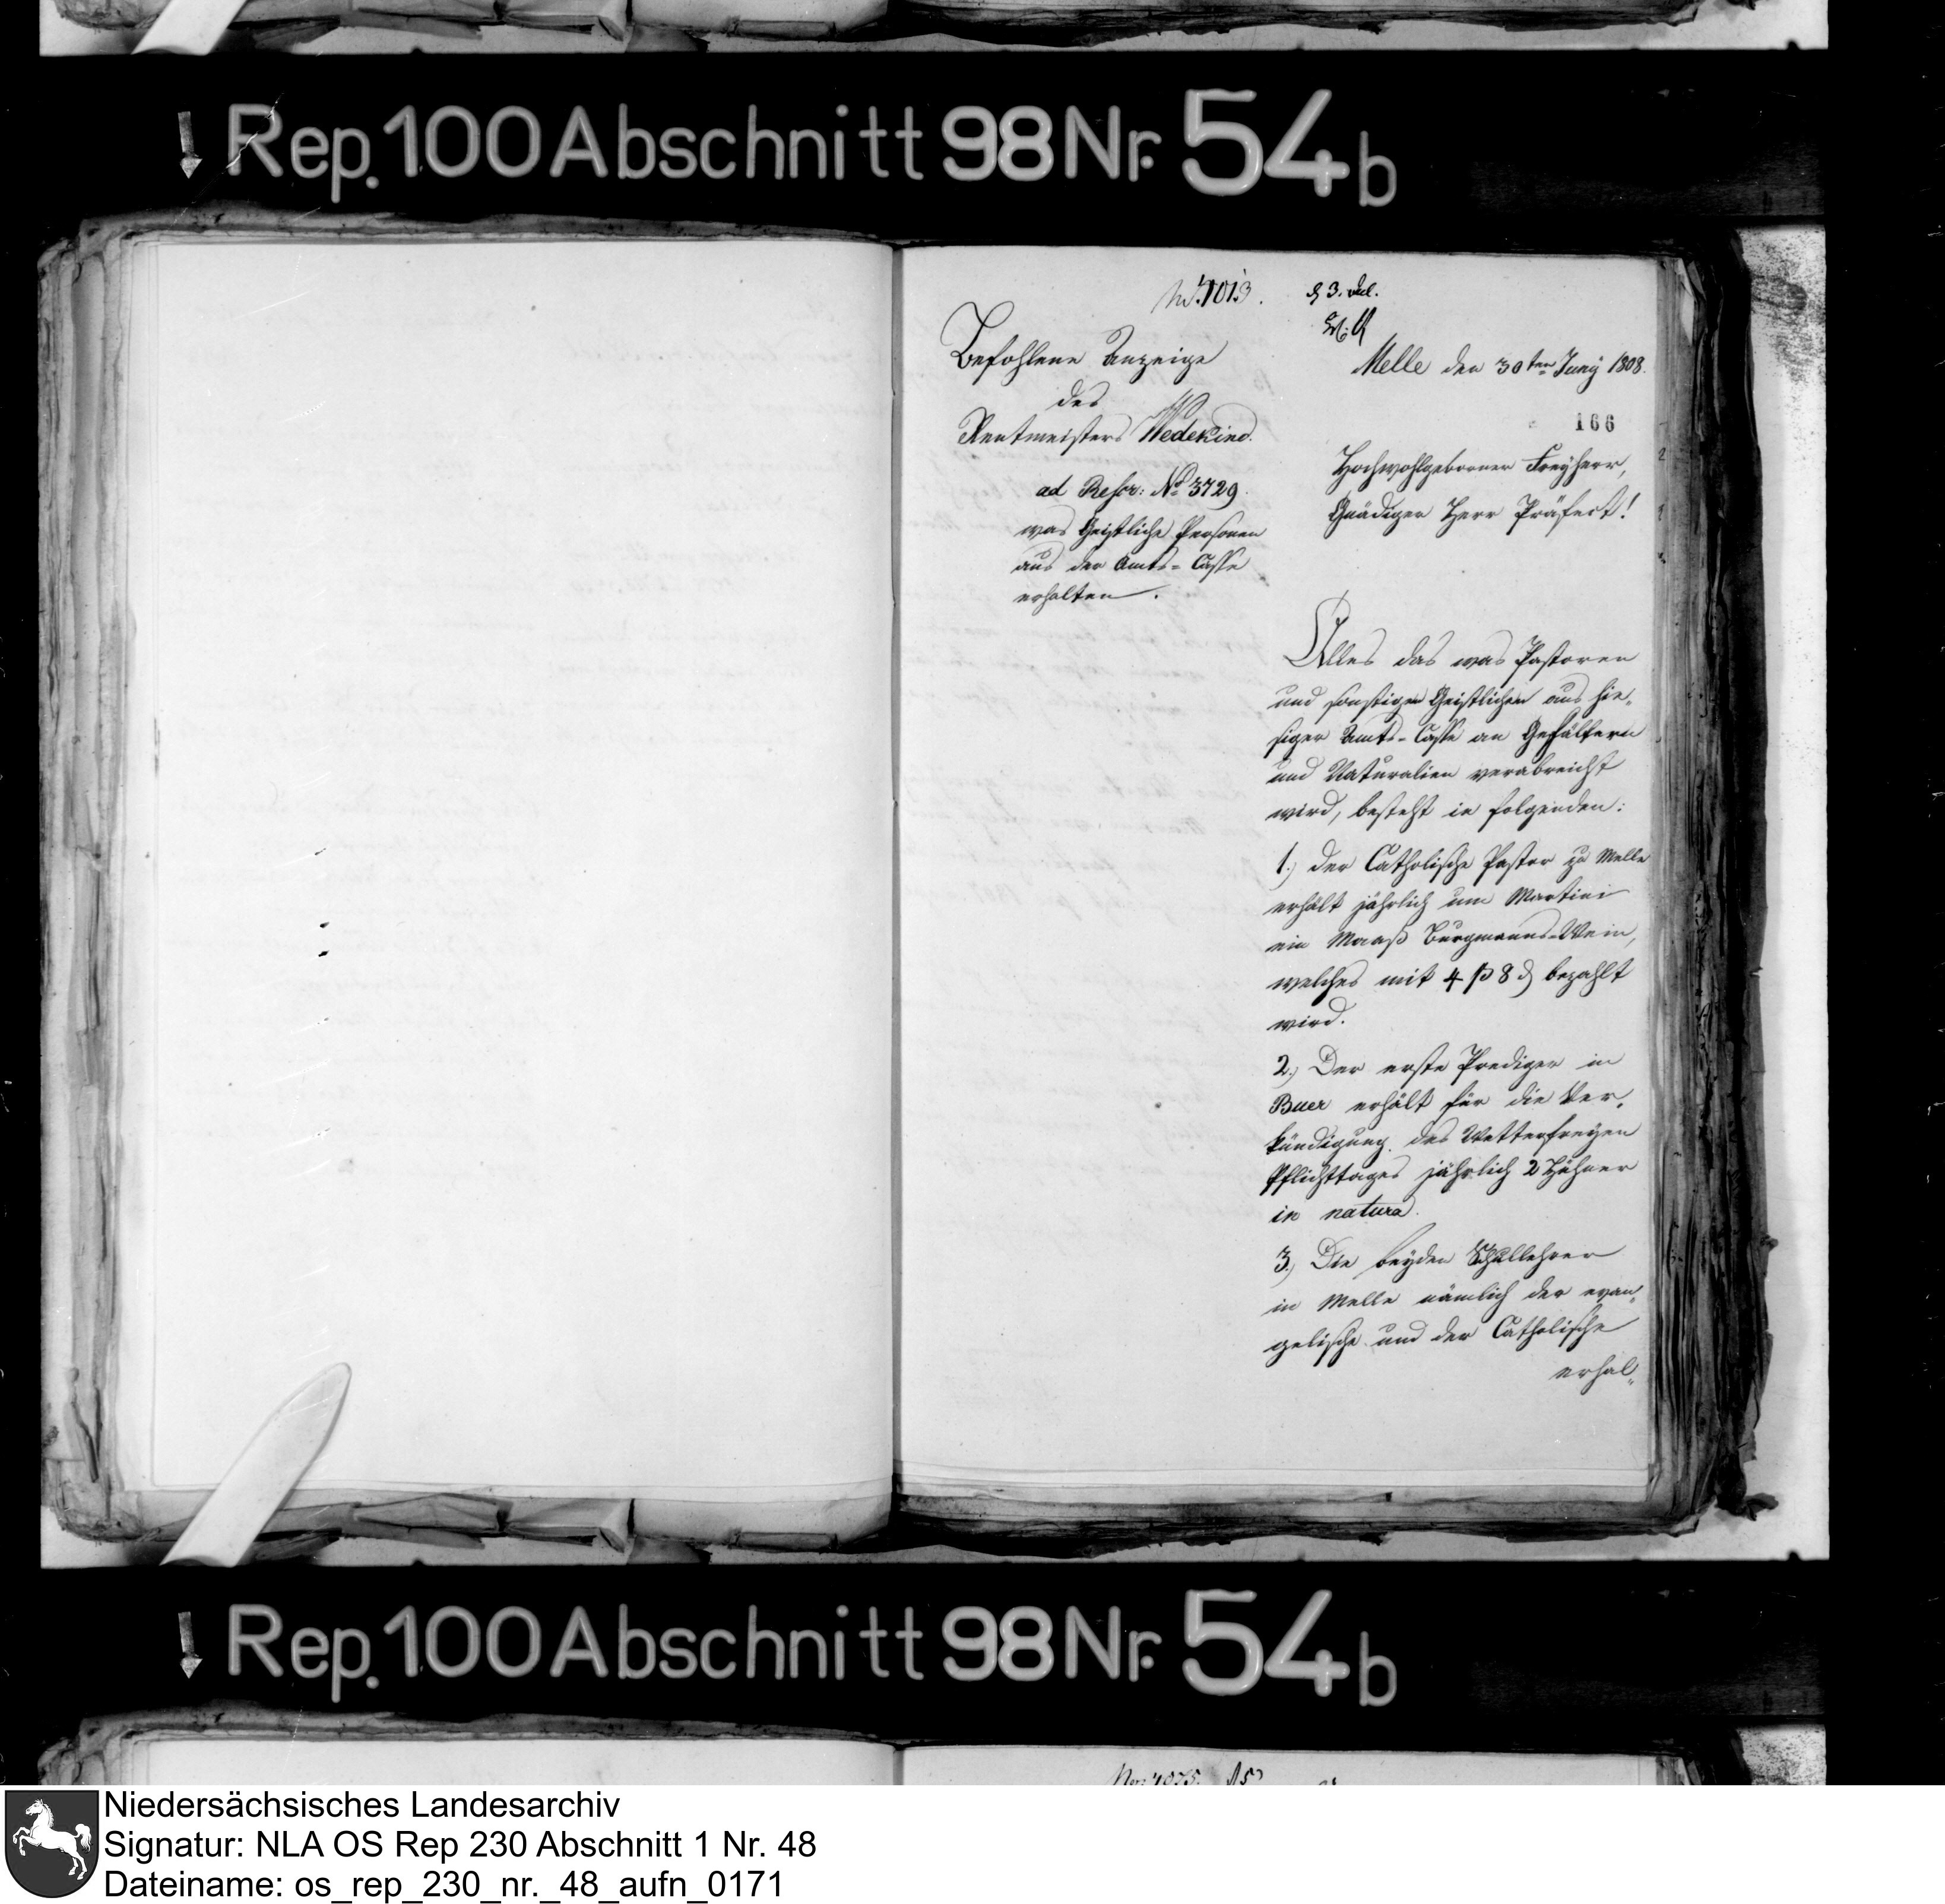 Rep. 100 Abschnitt 98 Nr. 54 b
No. 4013.
d 3. Jul.
Melle den 30ten Juny 1808.
166
Befohlene Anzeige
des
Rentmeisters Wedekind.
ad Rescr: No 3729.
was Geistliche Personen
aus der Amts-Casse
erhalten.
Hochwohlgeborner Freyherr,
Gnädiger Herr Präfect!
Alles das was Pastoren
und sonstigen Geistlichen aus hie-
siger Amts-Casse an Gehältern
und Naturalien verabreicht
wird, besteht in folgenden:
1.) der Catholische Pastor zu Melle
erhält jährlich um Martini
ein Maaß Burgmanns-Wein,
welches mit 4 ß 8 d bezahlt
wird.
2.) Der erste Prediger in
Buer erhält für die Ver-
kündigung des Wetterfreyen
Pflichttages jährlich 2 Hühner
in natura.
3.) Die beyden Schullehrer
in Melle nämlich der evan-
gelische und der Catholische
erhal-
Rep. 100 Abschnitt 98 Nr. 54 b
Niedersächsisches Landesarchiv
Signatur: NLA OS Rep 230 Abschnitt 1 Nr. 48
Dateiname: os_rep_230_nr._48_aufn_0171